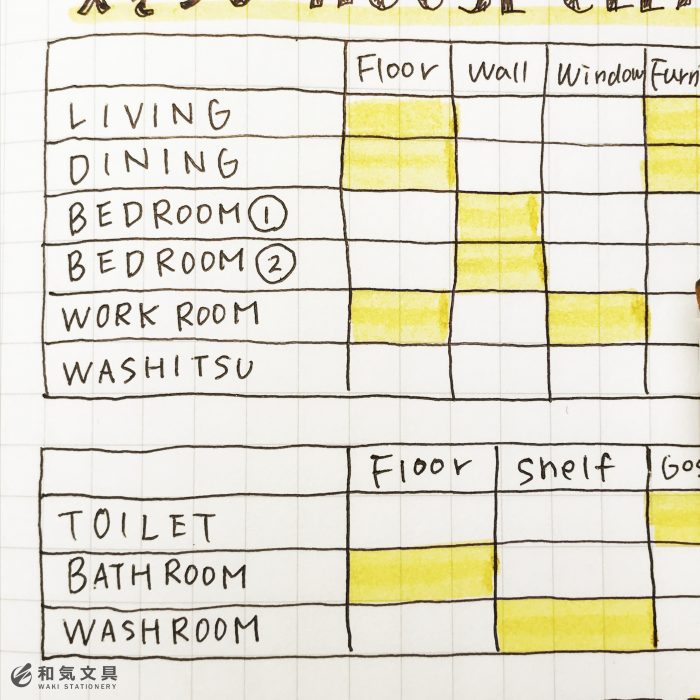 HOUSE
Floor Wall Window
LIVING
DINING
BEDROOM ①
BEDROOM ②
WORK ROOM
WASHITSU
Floor Shelf
TOILET
BATHROOM
WASHROOM
和気文具
WAKI STATIONERY